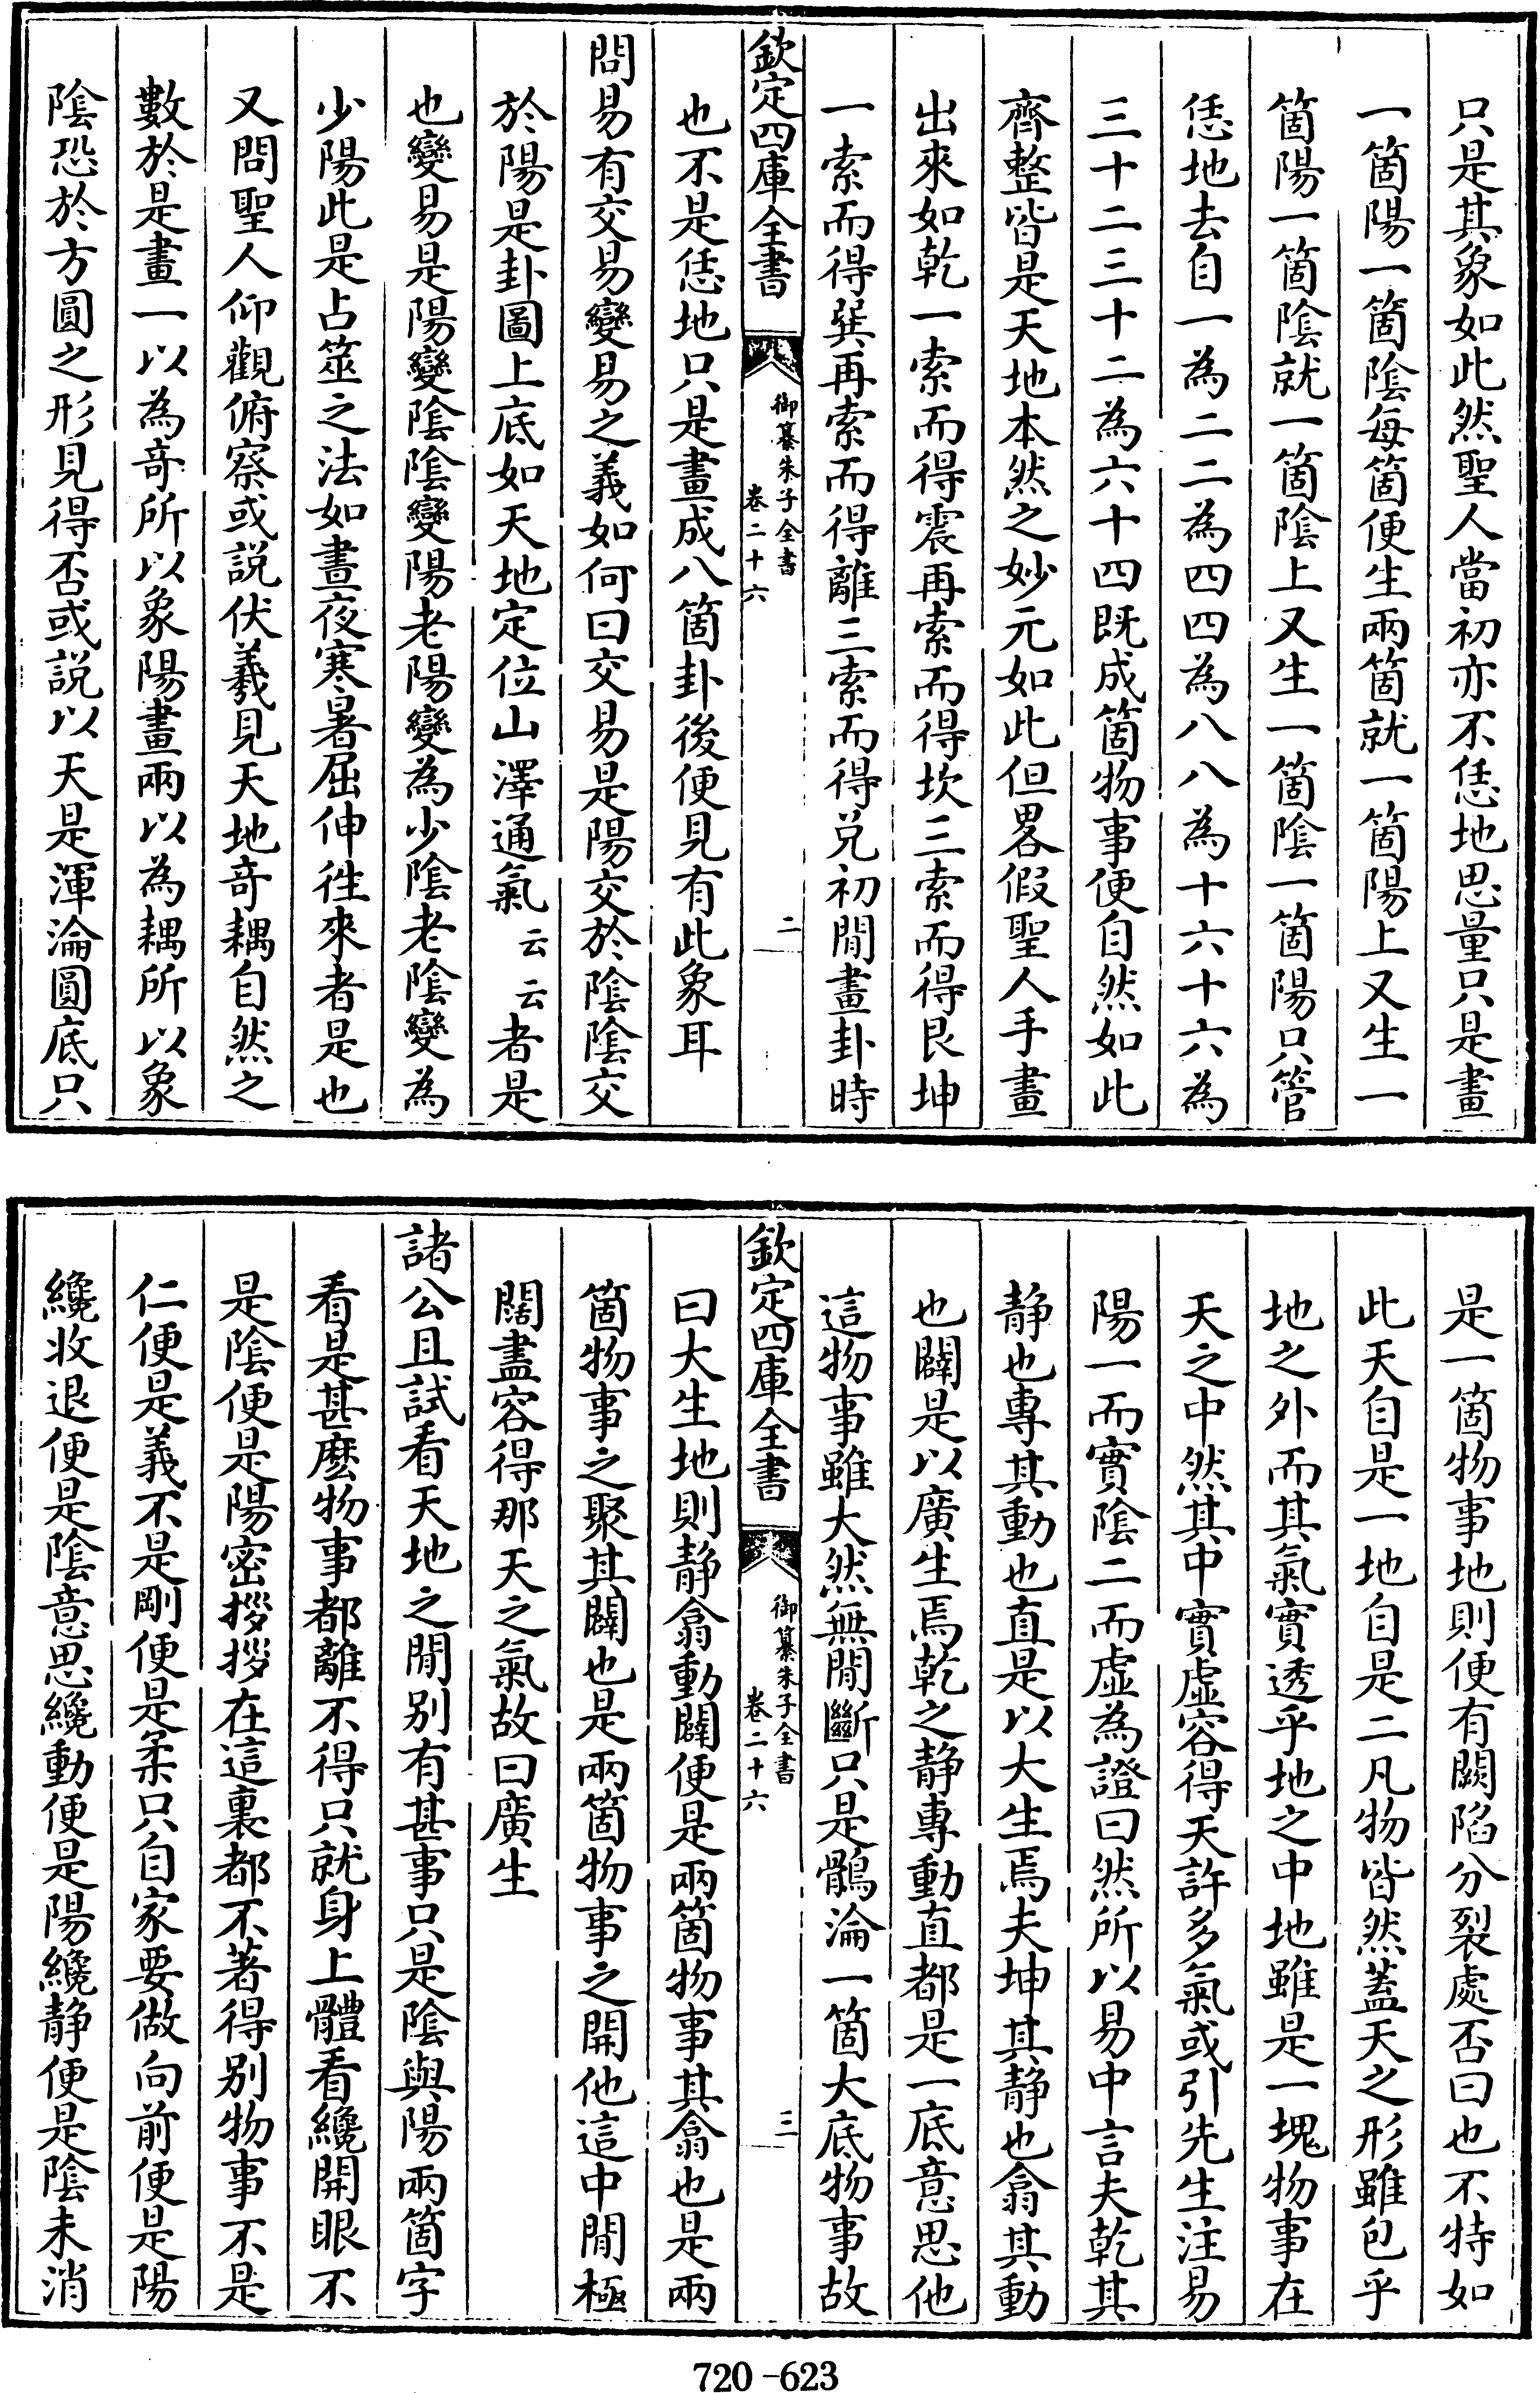 只是其象如此然聖人當初亦不恁地思量只是畫
一箇陽一箇陰每箇便生兩箇就一箇陽上又生一
箇陽一箇陰就一箇陰上又生一箇陰一箇陽只管
恁地去自一為二二為四四為八八為十六十六為
三十二三十二為六十四既成箇物事便自然如此
齊整皆是天地本然之妙元如此但畧假聖人手畫
出來如乾一索而得震再索而得坎三索而得艮坤
一索而得巽再索而得離三索而得兌初閒畫卦時
欽定四庫全書
御纂朱子全書
卷二十六
二
也不是恁地只是畫成八箇卦後便見有此象耳
問易有交易變易之義如何曰交易是陽交於陰陰交
於陽是卦圖上底如天地定位山澤通氣云云者是
也變易是陽變陰陰變陽老陽變為少陰老陰變為
少陽此是占筮之法如晝夜寒暑屈伸徃來者是也
又問聖人仰觀俯察或説伏羲見天地奇耦自然之
數於是畫一以為奇所以象陽畫兩以為耦所以象
陰恐於方圓之形見得否或説以天是渾淪圓底只
是一箇物事地則便有闕陷分裂處否曰也不特如
此天自是一地自是二凡物皆然蓋天之形雖包乎
地之外而其氣實透乎地之中地雖是一塊物事在
天之中然其中實虛容得天許多氣或引先生注易
陽一而實陰二而虛為證曰然所以易中言夫乾其
静也專其動也直是以大生焉夫坤其静也翕其動
也闢是以廣生焉乾之静專動直都是一底意思他
這物事雖大然無閒斷只是鶻淪一箇大底物事故
欽定四庫全書
御纂朱子全書
卷二十六
三
曰大生地則静翕動闢便是兩箇物事其翕也是兩
箇物事之聚其闢也是兩箇物事之開他這中閒極
闊盡容得那天之氣故曰廣生
諸公且試看天地之閒别有甚事只是陰與陽兩箇字
看是甚麽物事都離不得只就身上體看纔開眼不
是陰便是陽密拶拶在這裏都不著得别物事不是
仁便是義不是剛便是柔只自家要做向前便是陽
纔收退便是陰意思纔動便是陽纔静便是陰未消
720-623